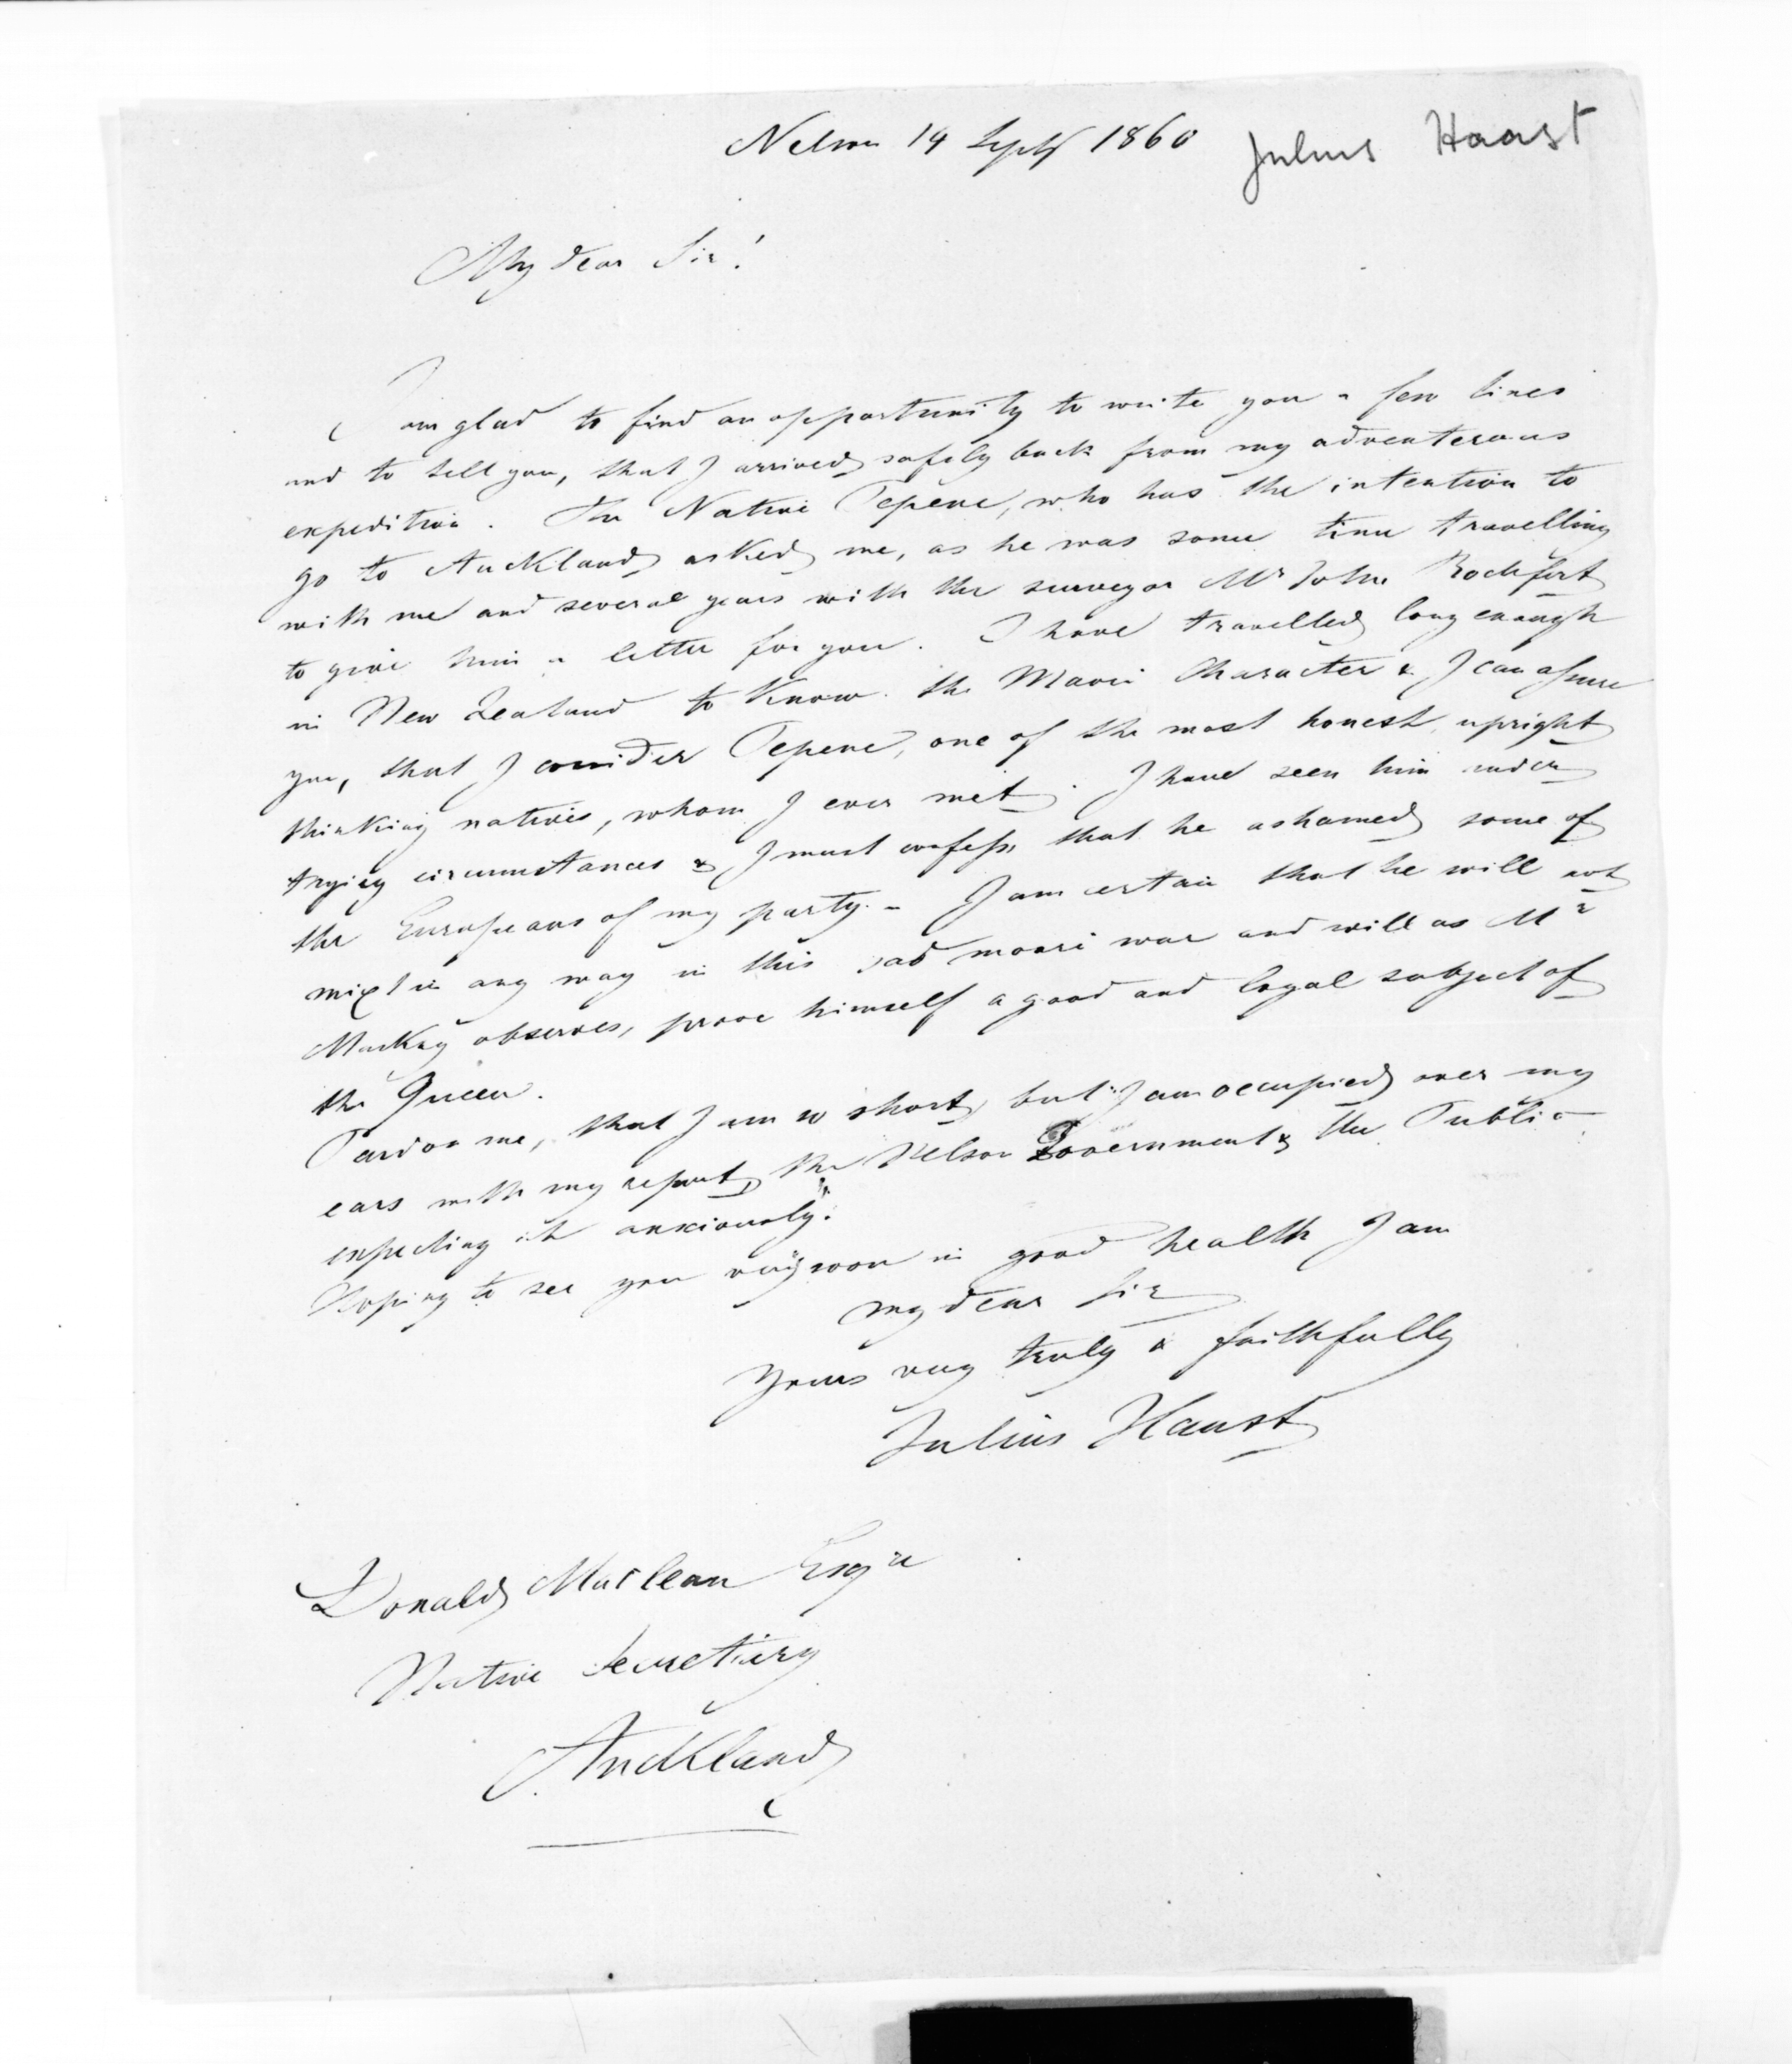 Nelson 14 Septbr 1860
Julius Haast
My dear Sir!
I am glad to find an opportunity to write you a few lines
and to tell you, that I arrived safely back from my adventerous
expedition. The Native Tepene, who has the intention to
go to Auckland asked me, as he was some time travelling
with me and several years with the surveyor Mr John Rochfort
to give him a letter for you. I have travelled long enough
in New Zealand to know the Maori Character & I can assure
you, that I consider Tepene, one of the most honest, upright
thinking natives, whom I ever met. I have seen him under
trying circumstances & I must confess, that he ashamed some of
the Europeans of my party. - I am certain that he will not
mix in any way in this sad maori war and will as Mr
Mackay observes, prove himself a good and loyal subject of
the Queen.
Pardon me, that I am so short, but I am occupied over my
ears with my report, the Nelson Government & the Public
expecting it anxiously.
Hoping to see you very soon in good health I am
my dear Sir
Yours very truly & faithfully
Julius Haast
Donald Maclean Esqre
Native Secretary
Auckland